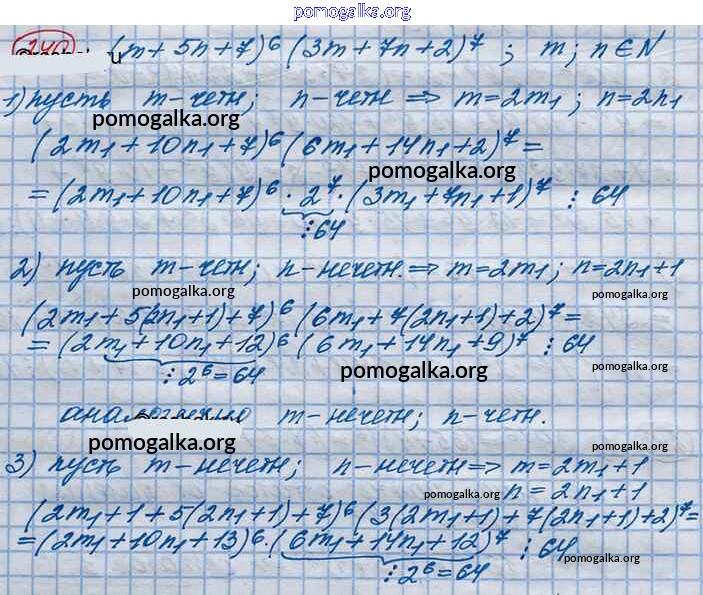 pomogalka.org
240 (m + 5n + 7)⁶ (3m + 7n + 2)⁷ ; m; n ∈ N
1) пусть m - четн; n - четн ⇒ m = 2m₁ ; n = 2n₁
pomogalka.org
(2m₁ + 10n₁ + 7)⁶ (6m₁ + 14n₁ + 2)⁷ =
pomogalka.org
= (2m₁ + 10n₁ + 7)⁶ · 2⁷ · (3m₁ + 7n₁ + 1)⁷ ⋮ 64
⋮ 64
2) пусть m - четн; n - нечетн. ⇒ m = 2m₁ ; n = 2n₁ + 1
pomogalka.org pomogalka.org
(2m₁ + 5(2n₁ + 1) + 7)⁶ (6m₁ + 7(2n₁ + 1) + 2)⁷ =
= (2m₁ + 10n₁ + 12)⁶ (6m₁ + 14n₁ + 9)⁷ ⋮ 64
⋮ 2⁶ = 64 pomogalka.org pomogalka.org
аналогично m - нечетн; n - четн.
pomogalka.org pomogalka.org
3) пусть m - нечетн; n - нечетн ⇒ m = 2m₁ + 1
pomogalka.org n = 2n₁ + 1
(2m₁ + 1 + 5(2n₁ + 1) + 7)⁶ (3(2m₁ + 1) + 7(2n₁ + 1) + 2)⁷ =
= (2m₁ + 10n₁ + 13)⁶ · (6m₁ + 14n₁ + 12)⁷ ⋮ 64
pomogalka.org
⋮ 2⁶ = 64